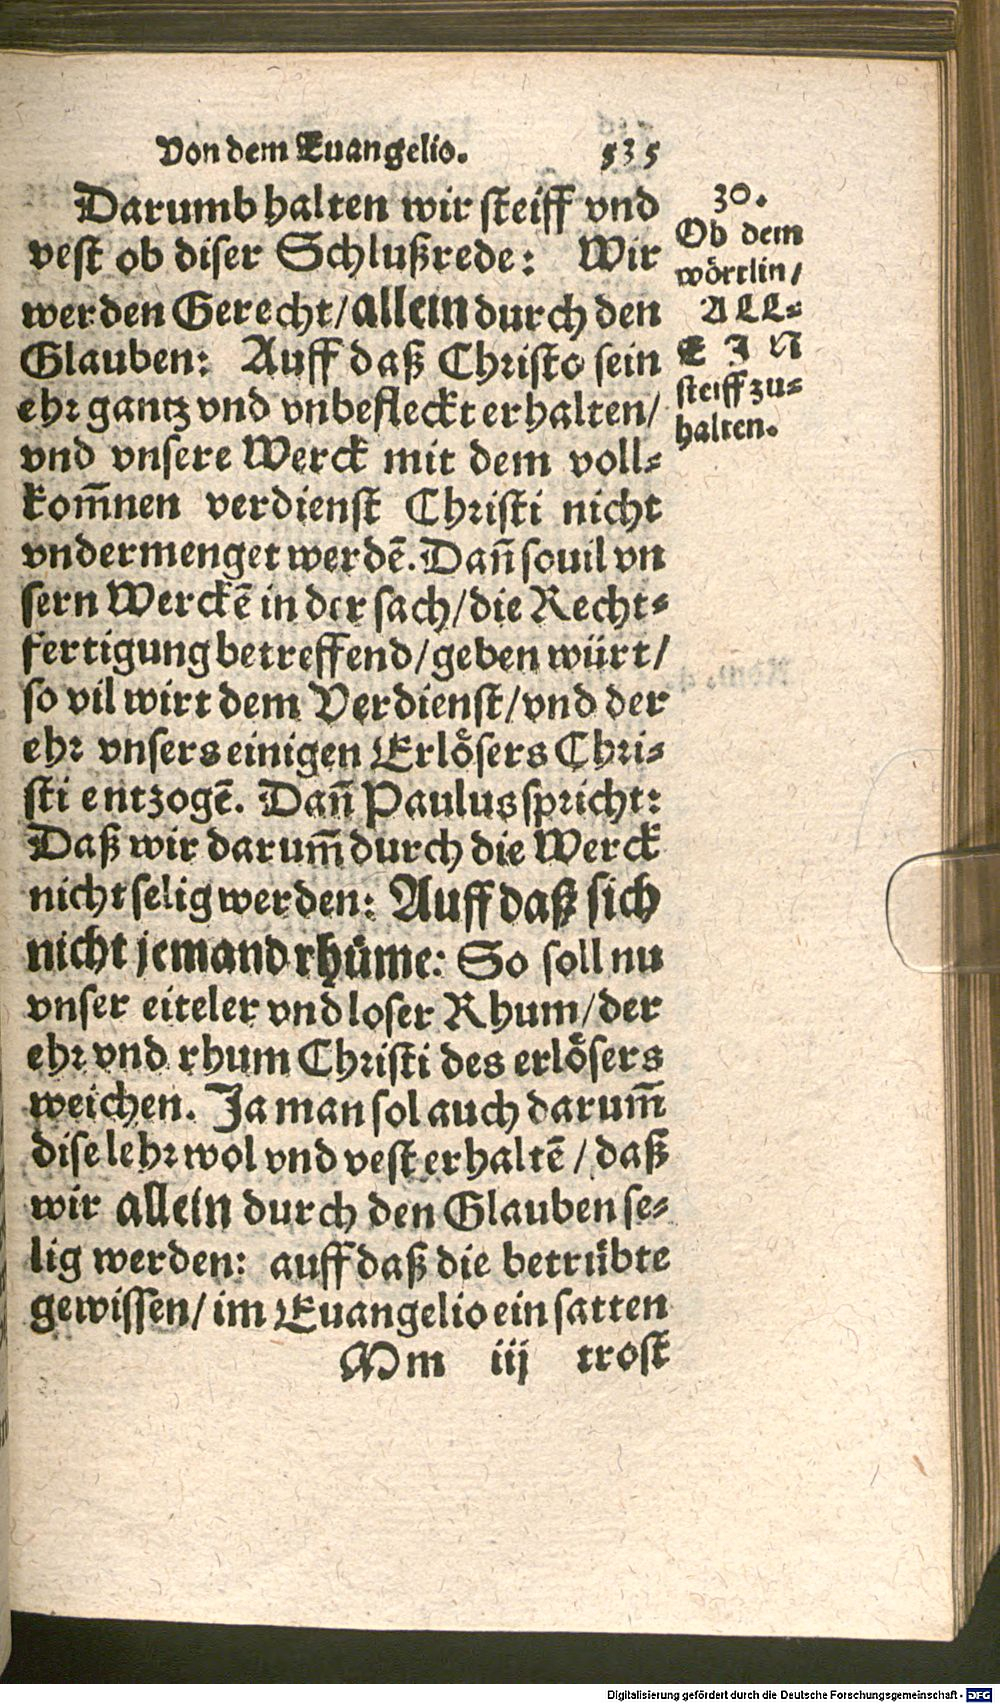 Von dem Euangelio. 535
Darumb halten wir steiff vnd
vest ob diser Schlußrede: Wir
werden Gerecht/ allein durch den
Glauben: Auff daß Christo sein
ehr gantz vnd vnbefleckt erhalten/
vnd vnsere Werck mit dem voll⸗
kom̄nen verdienst Christi nicht
vndermenget werdē. Dañ souil vn
sern Werckē in der sach/ die Recht⸗
fertigung betreffend/ geben würt/
so vil wirt dem Verdienst/ vnd der
ehr vnsers einigen Erlösers Chri⸗
sti entzogē. Dañ Paulus spricht:
Daß wir darum̄ durch die Werck
nicht selig werden: Auff daß sich
nicht jemand rhüme: So soll nu
vnser eiteler vnd loser Rhum/ der
ehr vnd rhum Christi des erlösers
weichen. Ja man sol auch darum̄
dise lehr wol vnd vest erhaltē/ daß
wir allein durch den Glauben se⸗
lig werden: auff daß die betrübte
gewissen/ im Euangelio ein satten
Mm iij trost
30.
Ob dem
wörtlin/
ALL⸗
EIN
steiff zu⸗
halten.
Digitalisierung gefördert durch die Deutsche Forschungsgemeinschaft - DFG